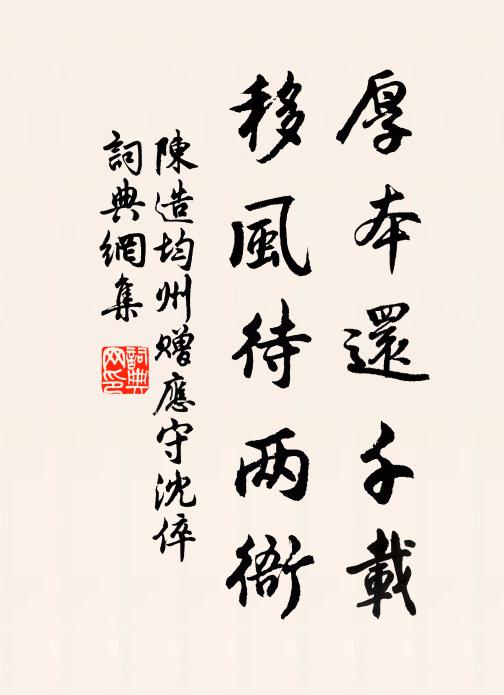 厚本還千載
移風待兩衙
陳造均州贈應守沈倅
詞典網集
詞典网印